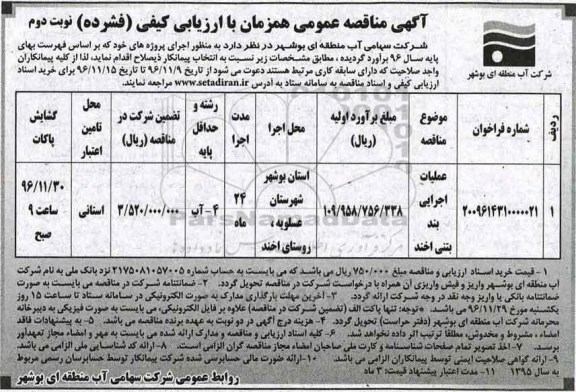 آگهی مناقصه عمومی همزمان با ارزیابی کیفی (فشرده) نوبت دوم
شرکت سهامی آب منطقه ای بوشهر در نظر دارد به منظور اجرای پروژه های خود که بر اساس فهرست بهای
پایه سال ۹۶ برآورد گردیده ، مطابق مشخصات زیر نسبت به انتخاب پیمانکار ذیصلاح اقدام نماید، لذا از کلیه پیمانکاران
واجد صلاحیت که دارای سابقه کاری مرتبط هستند دعوت می شود از تاریخ ۹۶/۱۱/۹ تا تاریخ ۹۶/۱۱/۱۵ برای خرید اسناد
ارزیابی کیفی و اسناد مناقصه به سامانه ستاد به آدرس www.setadiran.ir مراجعه نمایند.
شرکت آب منطقه ای بوشهر
ردیف
شماره فراخوان
موضوع مناقصه
مبلغ برآورد اولیه (ریال)
محل اجرا
مدت اجرا
رشته و حداقل پایه
تضمین شرکت در مناقصه (ریال)
محل تامین اعتبار
گشایش پاکات
۱
۲۰۰۹۶۱۴۳۱۰۰۰۰۰۲۱
عملیات اجرایی بند بتنی اخند
۱۰۹/۹۵۸/۷۵۶/۳۳۸
استان بوشهر شهرستان عسلویه ، روستای اخند
۲۴ ماه
۴- آب
۳/۵۲۰/۰۰۰/۰۰۰
استانی
۹۶/۱۱/۳۰ ساعت ۹ صبح
ParsNamadData
۱ - قیمت خرید اسناد ارزیابی و مناقصه مبلغ ۷۵۰/۰۰۰ ریال می باشد که می بایست به حساب شماره ۲۱۷۵۰۸۱۰۵۷۰۰۵ نزد بانک ملی به نام شرکت
آب منطقه ای بوشهر واریز و فیش واریزی آن همراه با درخواست شرکت در مناقصه تحویل گردد. ۲- ضمانتنامه شرکت در مناقصه می بایست به صورت
ضمانتنامه بانکی یا واریز وجه نقد در وجه شرکت ارائه گردد. ۳- آخرین مهلت بارگذاری مدارک به صورت الکترونیکی در سامانه ستاد تا ساعت ۱۵ روز
یکشنبه مورخ ۹۶/۱۱/۲۹ می باشد. *توجه: تنها پاکت الف (تضمین شرکت در مناقصه) علاوه بر فایل الکترونیکی می بایست به صورت فیزیکی به دبیرخانه
محرمانه شرکت آب منطقه ای بوشهر (دفتر حراست) تحویل گردد. ۴- هزینه درج آگهی در دو نوبت به عهده برنده مناقصه می باشد. ۵- به پیشنهادات فاقد
امضاء، مشروط و مخدوش، مطلقا ترتیب اثر داده نخواهد شد. ۶- کلیه اسناد ارزیابی و مناقصه و مدارک ارائه شده می بایست به مهر و امضاء مجاز تعهدآور
برسد. ۷- اخذ تصویر تمام صفحات شناسنامه و کارت ملی صاحبان امضاء مجاز مناقصه گران الزامی است. ۸- ارائه کد شناسایی ملی الزامی می باشد.
۹- ارائه گواهی صلاحیت ایمنی توسط پیمانکاران الزامی می باشد. ۱۰- ارائه صورت مالی حسابرسی شده شرکت پیمانکار توسط حسابرسان رسمی مربوط
به سال ۱۳۹۵ ۱۱- مدت اعتبار پیشنهاد قیمت: ۳ ماه
روابط عمومی شرکت سهامی آب منطقه ای بوشهر